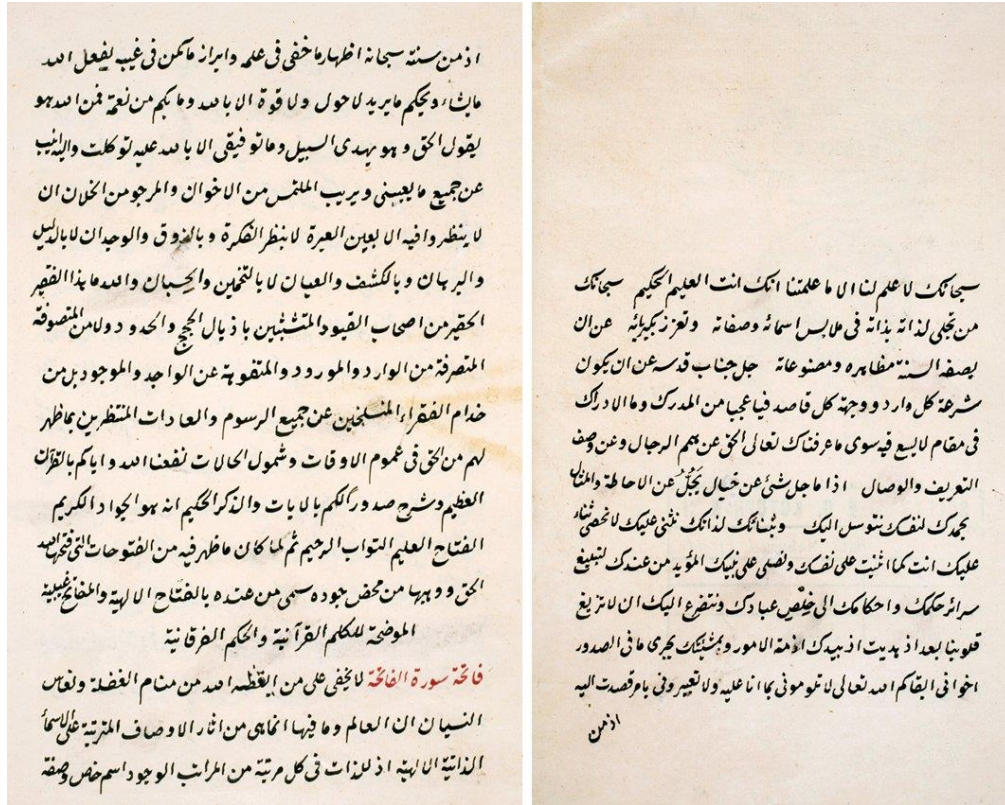 سبحانك لا علم لنا الا ما علمتنا انك انت العليم الحكيم سبحانك
من تجلى لذاته بذاته فى ملابس اسمائه وصفاته وتعزز بكبريائه عن ان
يصفه السنة مظاهره ومصنوعاته جل جناب قدسه عن ان يكون
شرعة كل وارد ووجهة كل قاصد فيا عجبا من المدرك وما الادراك
فى مقام لا يسع فيه سوى ما عرفناك تعالى الحق عن همم الرجال وعن وصف
التعريف والوصال اذا ما جل شئ عن خيال يجل عن الاحاطة والمثال
بحمدك لنفسك نتوسل اليك وبثنائك لذاتك نثنى عليك لا نحصى ثناء
عليك انت كما اثنيت على نفسك ونصلى على نبيك المؤيد من عندك لتبليغ
سرائر حكمك واحكامك الى خلص عبادك ونتضرع اليك ان لا تزيغ
قلوبنا بعد اذ هديت اذ بيدك ازمة الامور وبمشيئتك يجرى ما فى الصدور
اخوانى ابقاكم الله تعالى لا تلومونى بما انا عليه ولا تعيرونى بامر قصدت اليه
اذ من
اذ من سنته سبحانه اظهار ما خفى فى علمه وابراز ما كمن فى غيبه يفعل الله
ما يشاء ويحكم ما يريد لا حول ولا قوة الا بالله وما بكم من نعمة فمن الله هو
يقول الحق وهو يهدى السبيل وما توفيقى الا بالله عليه توكلت واليه انيب
عن جميع ما يعيبنى ويريب الملتمس من الاخوان والمرجو من الخلان ان
لا ينظروا فيه الا بعين العبرة لا بنظر الفكرة وبالذوق والوجدان لا بالدليل
والبرهان وبالكشف والعيان لا بالتخمين والحسبان والله ما هذا الفقير
الحقير من اصحاب القيود المتشبثين باذيال الحجج والحدود ولا من المتصوفة
المتصرفة من الوارد والمورود والمتفوهة عن الواجد والموجود بل من
خدام الفقراء المنسلخين عن جميع الرسوم والعادات المنتظرين بما ظهر
لهم من الحق فى عموم الاوقات وشمول الحالات نفعنا الله واياكم بالقرآن
العظيم وشرح صدورا لكم بالايات والذكر الحكيم انه هو الجواد الكريم
الفتاح العليم التواب الرحيم ثم لما كان ما ظهر فيه من الفتوحات التى فتحها الله
الحق ووهبها من محض جوده سمى من عنده بالفتاح الالهية والمفاتح الغيبية
الموضحة للكلم القرآنية والحكم الفرقانية
فاتحة سورة الفاتحة لا يخفى على من ايقظه الله من منام الغفلة ونعاس
النسيان ان العالم وما فيها انما هى من اثار الاوصاف المترتبة على الاسماء
الذاتية الالهية اذ للذات فى كل مرتبة من المراتب الوجود اسم خاص وصفة